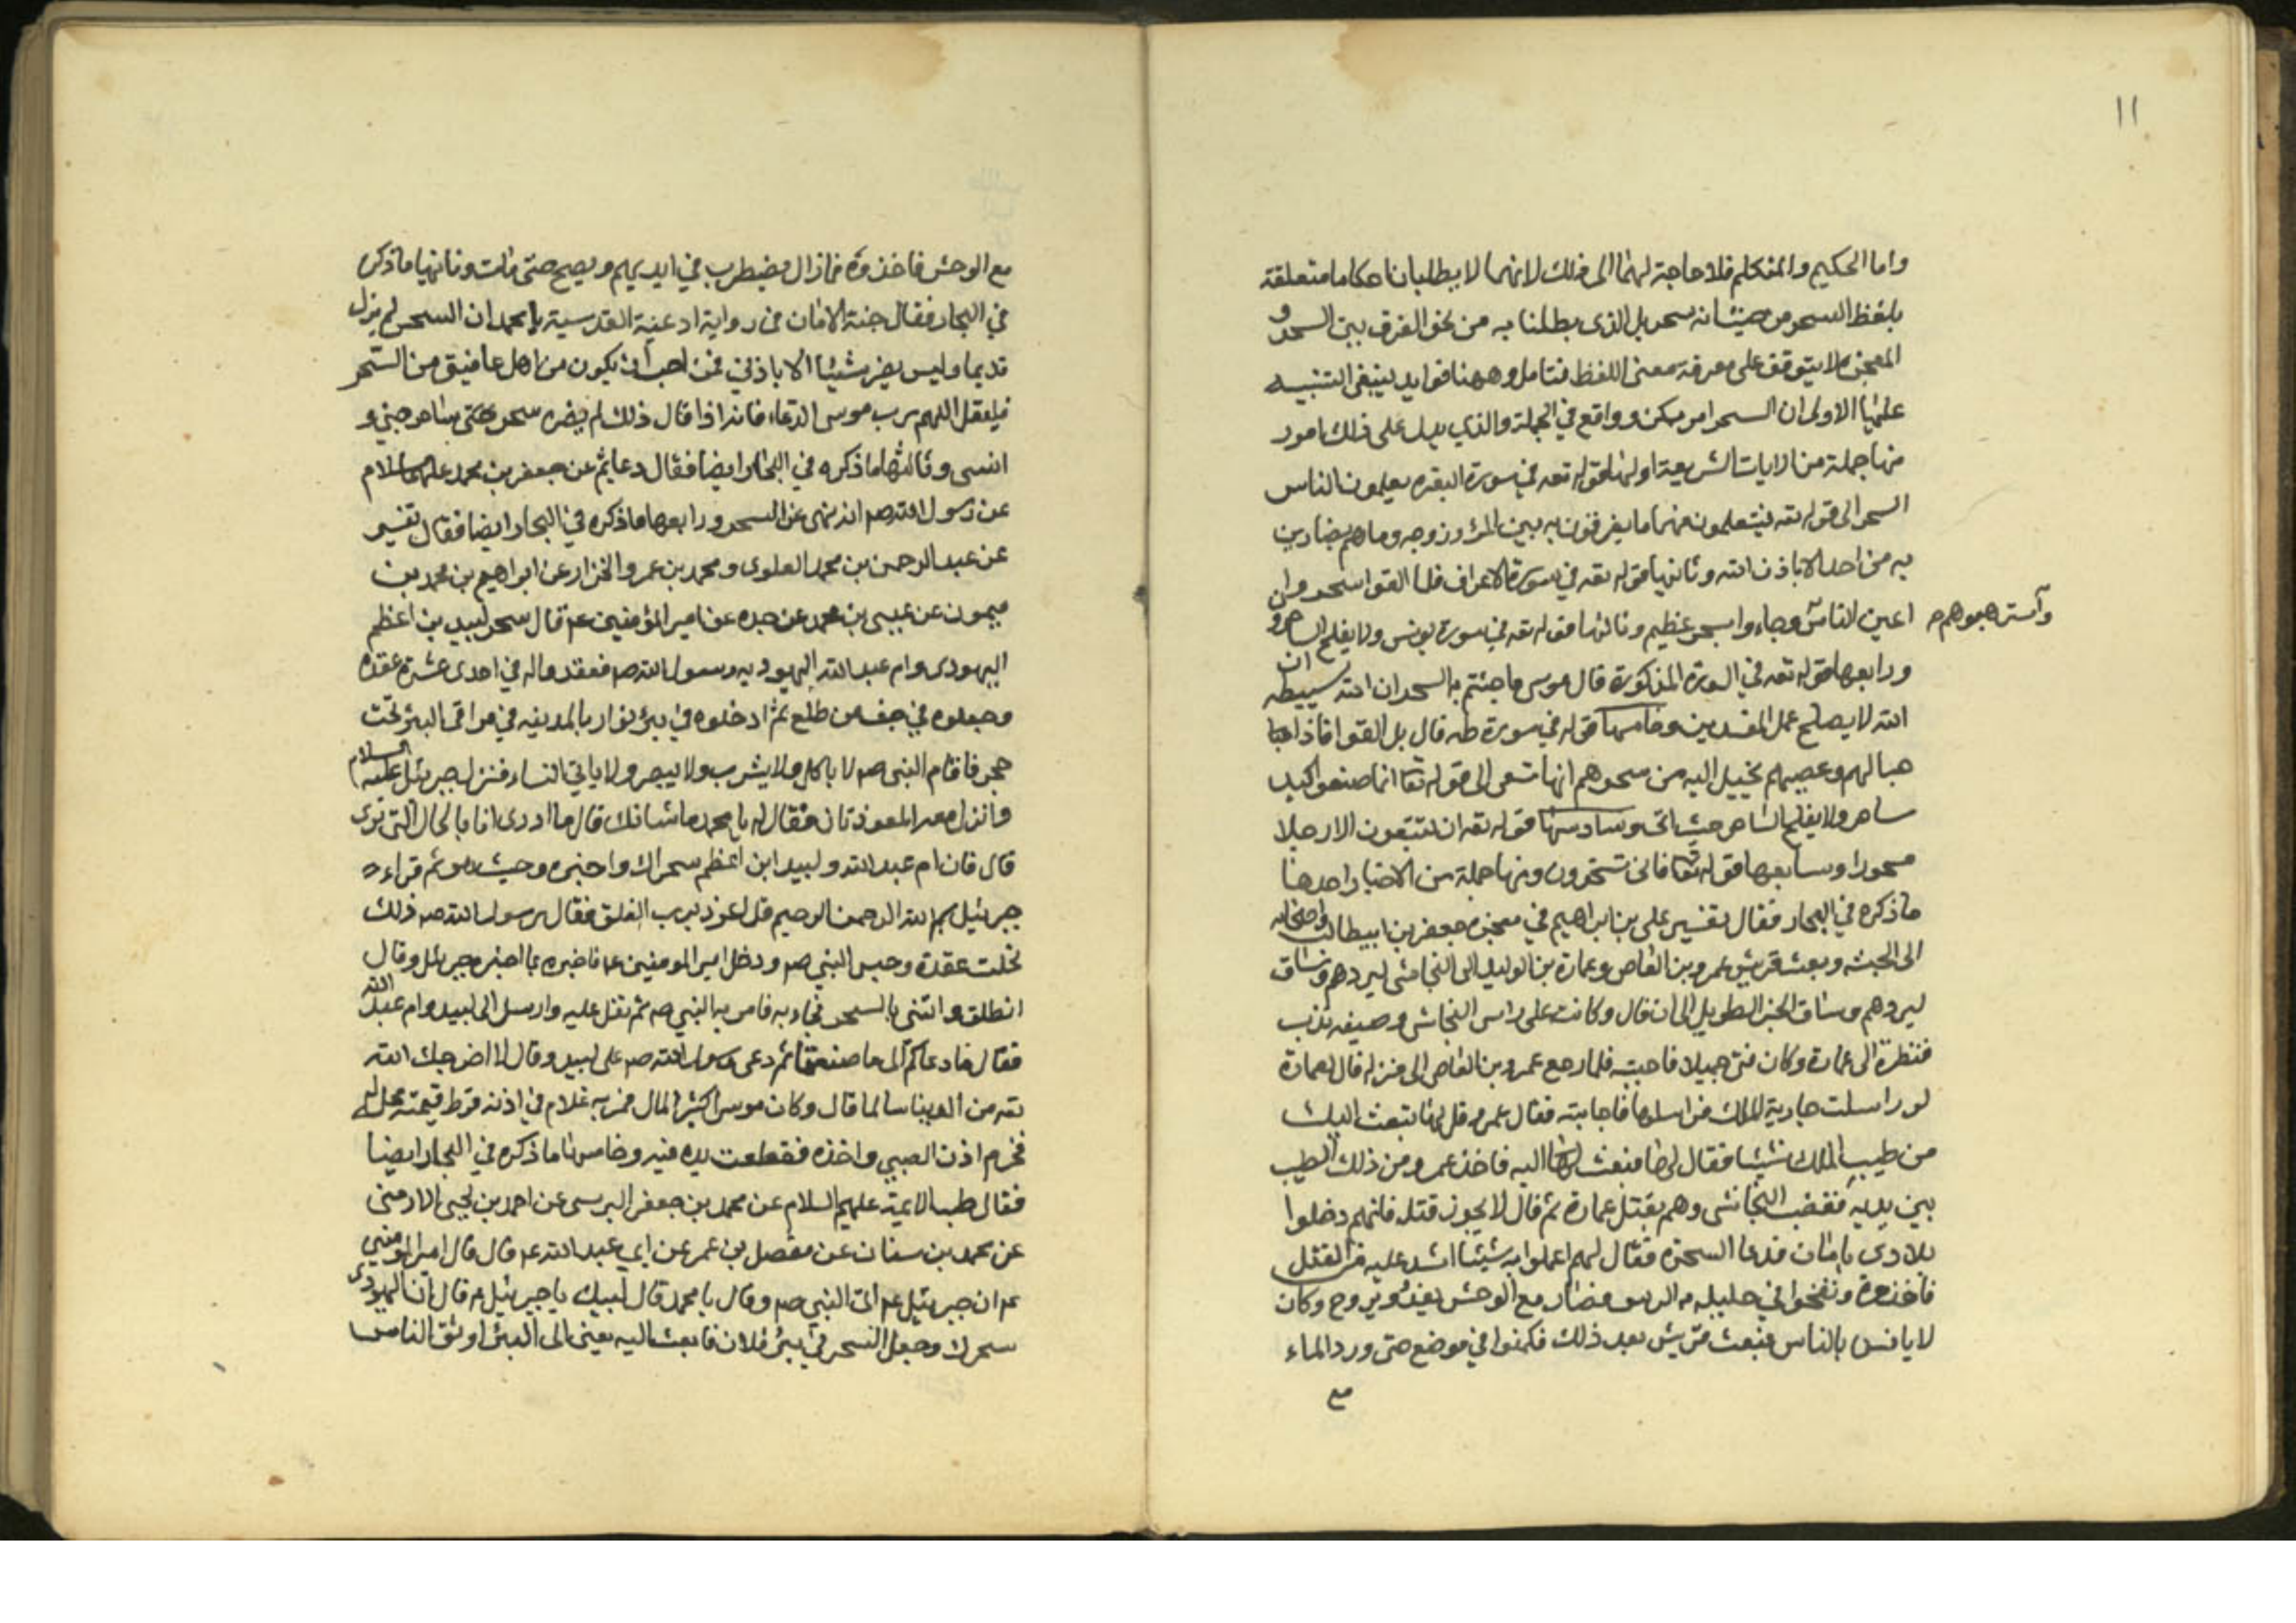 ١١
واما الحكيم والمتكلم فلا حاجة لهما الى ذلك لانهما لا يطلبان احكاما متعلقة
بلفظ السحر من حيث انه سحر بل الذى يطلبنا به من نحو الفرق بين السحر و
المعجزة لا يتوقف على معرفة معنى اللفظ فتامل وههنا فوايد ينبغى التنبيه
عليها الاولى ان السحر امر ممكن وواقع في الجملة والذي يدل على ذلك امور
منها جملة من الايات الشريعة اولها قوله تعه في سورة البقره يعلمون الناس
السحر الى قوله تعه فيتعلمون منهما ما يفرقون به بين المرء وزوجه وما هم بضارين
به من احد الا باذن الله وثانيها قوله تعه في سورة الاعراف فلما القوا سحروا
اعين الناس وجاءوا بسحر عظيم وثالثها قوله تعه في سورة يونس ولا يفلح الساحرو
واسترهبوهم
ورابعها قوله تعه في السورة المذكورة قال موسى ما جئتم به السحر ان الله سيبطله ان
الله لا يصلح عمل المفسدين وخامسها قوله في سورة طه قال بل القوا فاذا
حبالهم وعصيهم يخيل اليه من سحرهم انها تسعى الى قوله تعا انما صنعوا كيد
ساحر ولا يفلح الساحر حيث اتى وسادسها قوله تعه ان تتبعون الا رجلا
مسحورا وسابعها قوله تعا فانى تسحرون ومنها جملة من الاخبار احدها
ما ذكره في البحار فقال تفسير على بن ابراهيم في معجزه جعفر بن ابيطالب واصحابه
الى الحبشه وبعث قريش عمرو بن العاص وعمارة بن الوليد الى النجاشى ليردهم وساق
ليردهم وساق الخبر الطويل الى ان قال وكانت على راس النجاشى وصيفه تذب
فنظرت الى عمارة وكان فتى جميلا فاحبته فلما رجع عمرو بن العاص الى منزله قال لعمارة
لو راسلت جارية الملك فراسلها فاجابته فقال عمرو قل لها تبعث اليك
من طيب الملك شيئا فقال لها فبعث اليه فاخذ عمرو من ذلك الطيب
بين يديه فغضب النجاشى وهم بقتل عمارة ثم قال لا يجوز قتله فانهم دخلوا
بلادى بامان فدعا السحرة فقال لهم اعملوا به شيئا اشد عليه من القتل
فاخذوه ونفخوا في حليله الزيبق فصار مع الوحش يغدو ويروح وكان
لا يانس بالناس فبعث قريش بعد ذلك فكمنوا في موضع حتى ورد الماء
مع
مع الوحش فاخذوه فمازال يضطرب في ايديهم ويصيح حتى مات وثانيها ما ذكره
في البحار فقال جنة الامان فى رواية ادعية القدسية يا محمد ان السحر لم يزل
قديما وليس يضر شيئا الا باذني فمن احب ان يكون من اهل عافيتى من السحر
فليقل اللهم رب موسى الدعاء فانه اذا قال ذلك لم يضره سحر ساحر جني و
انسى وثالثها ما ذكره في البحار ايضا فقال دعايم عن جعفر بن محمد عليهما السلام
عن رسول الله صم انه نهى عن السحر ورابعها ما ذكره في البحار ايضا فقال تفسير
عن عبد الرحمن بن محمد العلوى ومحمد بن عمرو الخزار عن ابراهيم بن محمد بن
ميمون عن عيسى بن محمد عن جده عن امير المؤمنين عم قال سحر لبيد بن اعظم
اليهودى وام عبد الله اليهوديه رسول الله صم فعقد واله في احدى عشرة عقده
وجعلوه في جف من طلع ثم ادخلوه في بير بوادٍ بالمدينه في مراقى البئر تحت
حجر فاقام النبي صم لا ياكل ولا يشرب ولا يبصر ولا ياتي النساء فنزل جبرئيل عليه السلام
وانزل معه المعوذتان فقال له يا محمد ما شانك قال ما ادرى انا بالحال التى ترى
قال فان ام عبد الله ولبيد ابن اعظم سحراك واخبره وحيث هو ثم قراء
جبرئيل بسم الله الرحمن الرحيم قل اعوذ برب الفلق فقال رسول الله صم ذلك
نحلت عقدة وحبس النبي صم ودخل امير المومنين عم فاخبره بما اخبره جبرئيل وقال
انطلق وائتنى بالسحر فجاء به فامر به النبي صم ثم تفل عليه وارسل الى لبيد وام عبد الله
فقال ما دعاكم الى ما صنعتما ثم دعى رسول الله صم على لبيد وقال لا اخرجك الله
تعه من الدينا سالما قال وكان موسرا كثير المال فمر به غلام في اذنه قرط قيمته
فخرم اذن الصبي واخذه فقطعت يده فيه وخامسها ما ذكره في البحار ايضا
فقال طب الائمة عليهم السلام عن محمد بن جعفر البرسى عن احمد بن يحيى الارمنى
عن محمد بن سنان عن مفضل بن عمر عن ابي عبد الله عم قال قال امير المومنين
عم ان جبرئيل عم اتى النبي صم وقال يا محمد قال لبيك يا جبرئيل قال ان اليهودى
سحرك وجعل السحر في بئر فلان فابعث اليه يعنى الى البئر اوثق الناس